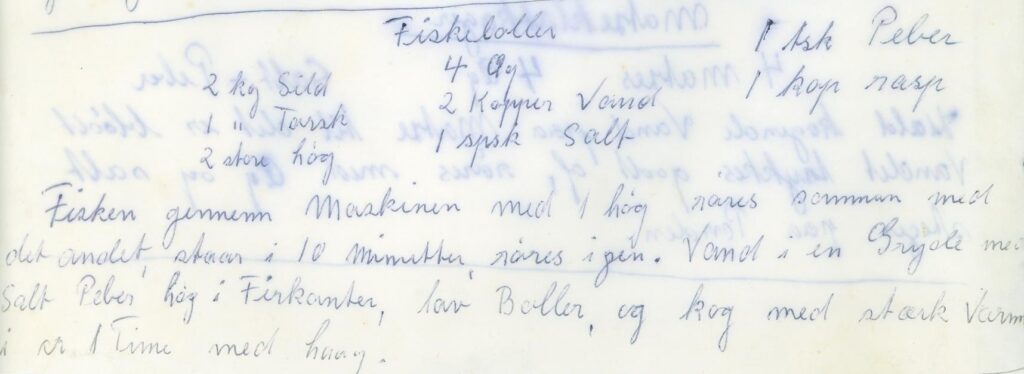 Fiskeboller
2 kg Sild
1 " Torsk
2 store løg
4 Æg
2 Kopper Vand
1 spsk Salt
1 tsk Peber
1 kop rasp
Fisken gennem Maskinen med 1 løg røres sammen med
det andet, staar i 10 Minutter, røres igen. Vand i en Gryde med
Salt Peber løg i Firkanter, lav Boller, og kog med stærk Varm
i ca 1 Time med laag.